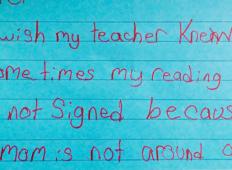 wish my teacher Knew
ometimes my reading
not Signed becaus
mom is not around a